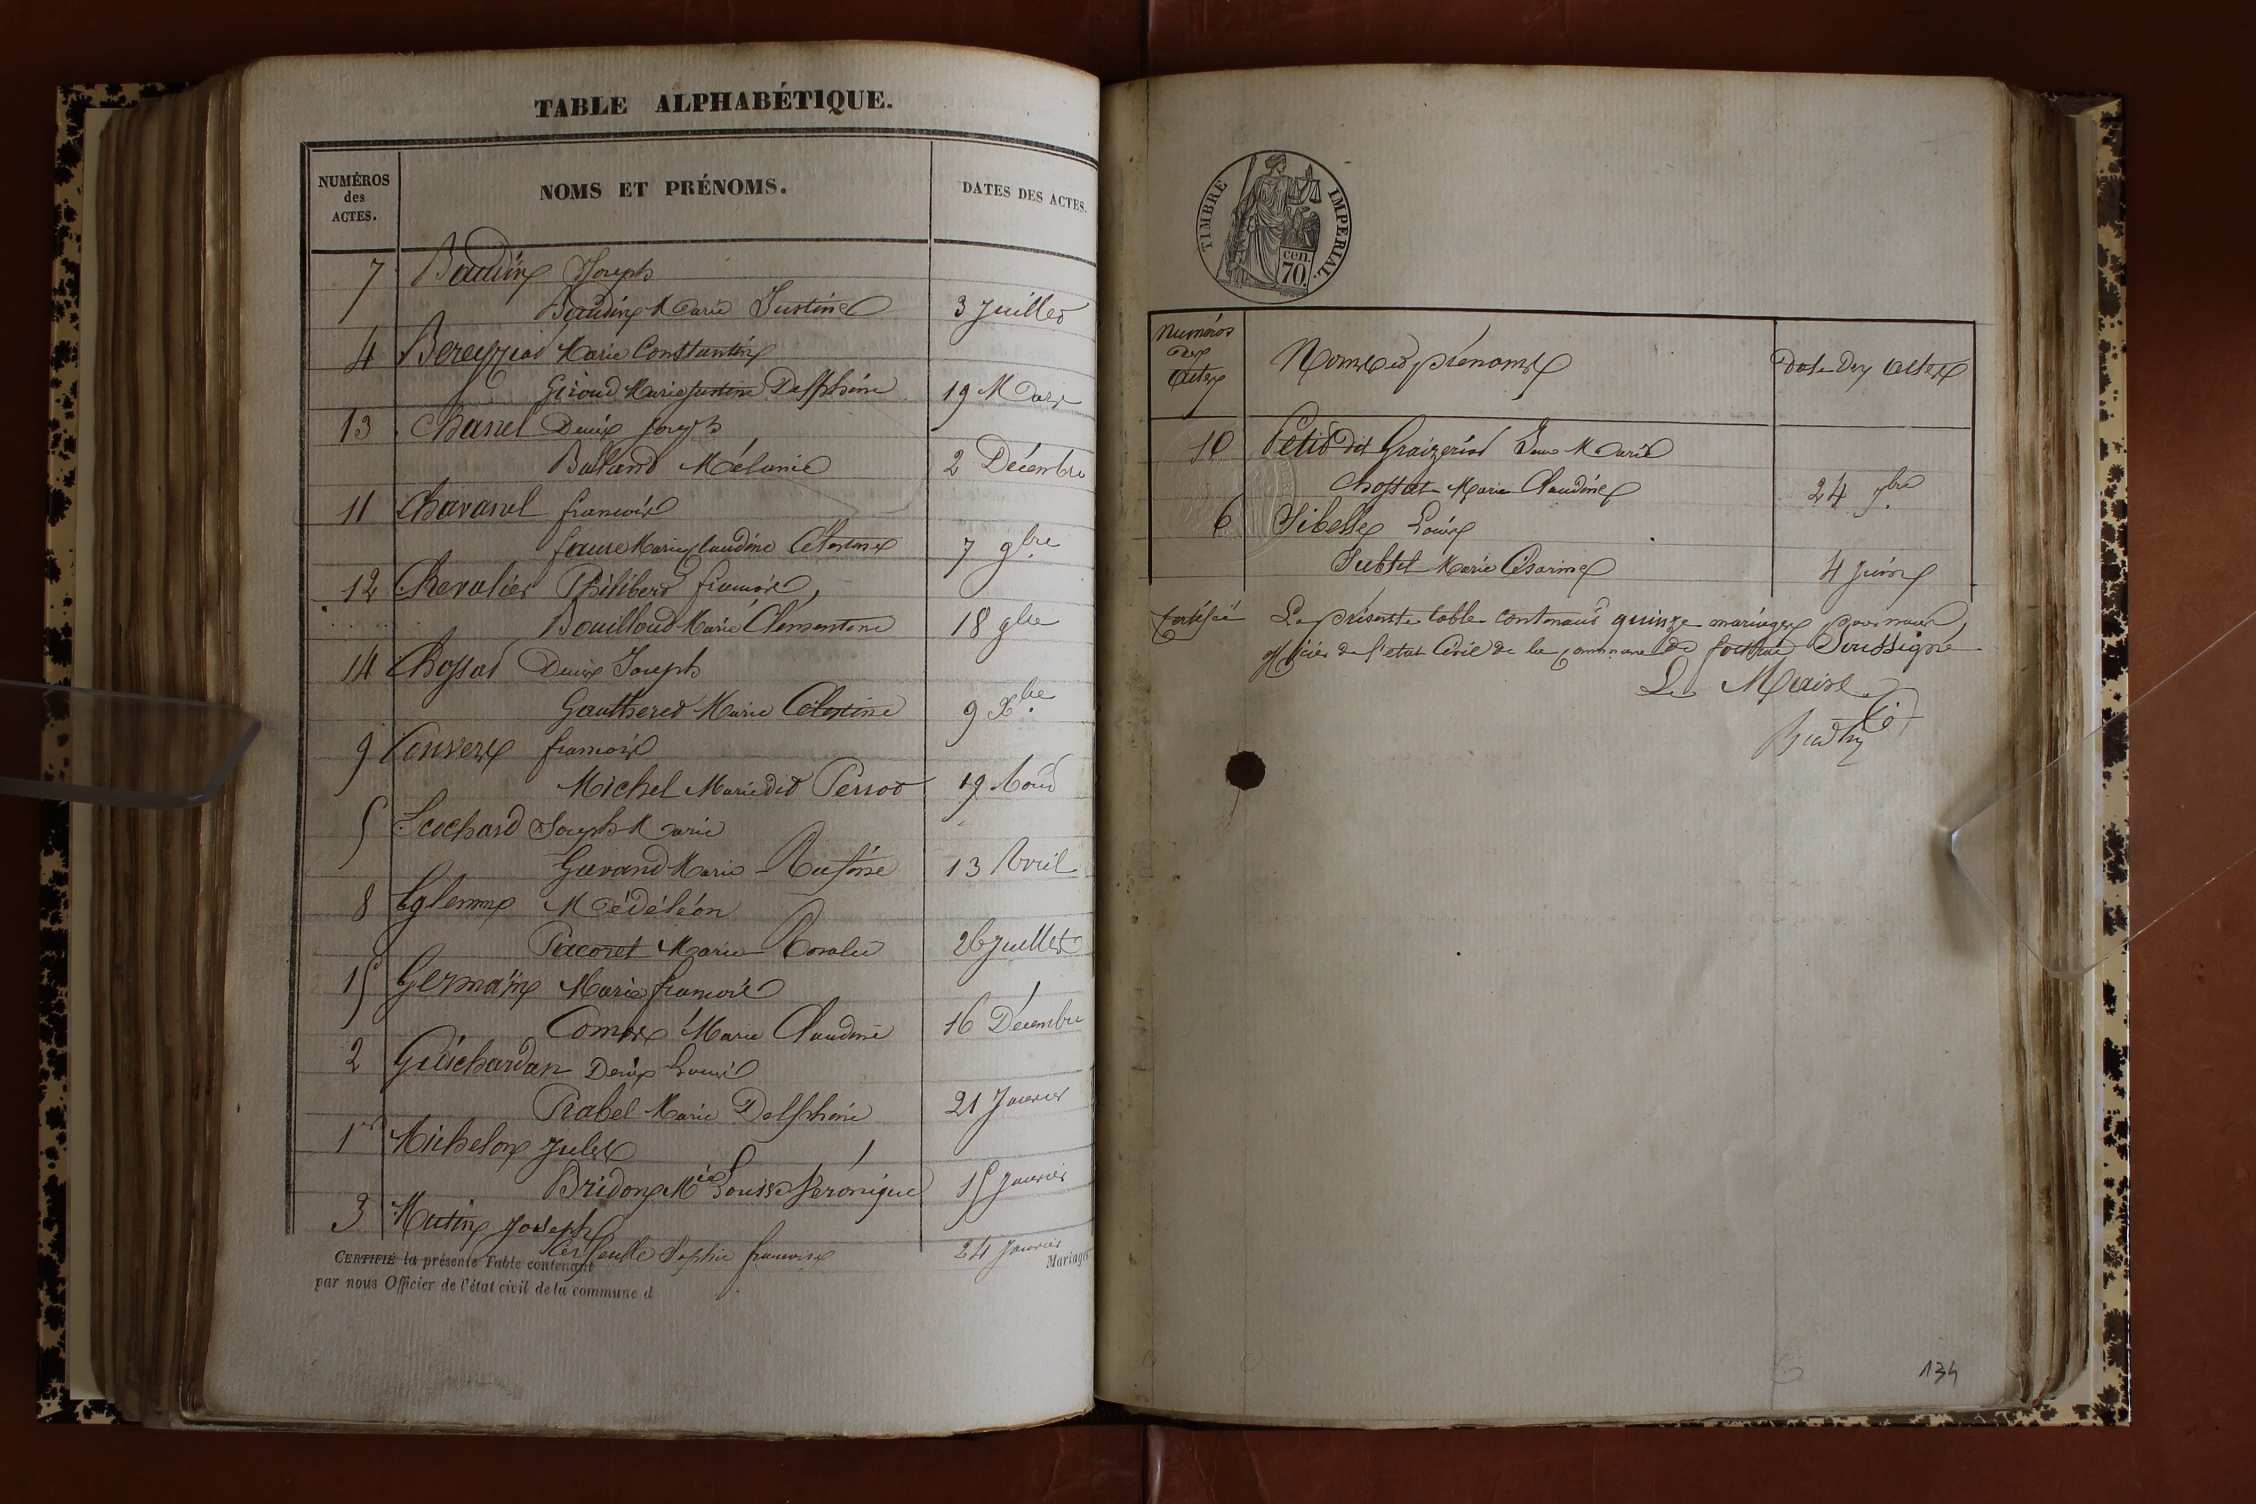 TABLE ALPHABÉTIQUE.
NUMÉROS
des
ACTES.
NOMS ET PRÉNOMS.
DATES DES ACTES.
7 Baudin Joseph
Baudin Marie Justine 3 Juillet
4 Bereyziat Marie Constantin
Giroud Marie Justine Delphine 19 Mars
13 Chanel Denis Joseph
Balland Mélanie 2 Décembre
11 Chavanel françois
faure Marie Claudine Célestine 7 9bre
12 Chevalier Philibert françois
Bouilloud Marie Clémentine 18 9bre
14 Chossat Denis Joseph
Gautheret Marie Célestine 9 Xbre
9 Convers françois
Michel Marie dit Perrot 19 Août
5 Ecochard Joseph Marie
Gavand Marie 13 Avril
8 Médéléon
Pacoret Marie Rosalie 26 Juillet
15 Germain Marie françois
Comas Marie Claudine 16 Décembre
2 Guichardan Denis Louis
Prabel Marie Delphine 21 Janvier
1er Michelon Jules
Bridon Mie Louise Véronique 15 Janvier
3 Mutin Joseph
Sophie françoise 24 Janvier
CERTIFIÉ la présente Table contenant Mariages
par nous Officier de l'état civil de la commune d
TIMBRE IMPERIAL.
cen.
70.
Numéros
des
Actes
Noms et prénoms
Date des Actes
10 Petit dit Graizeriat Jean Marie
Chossat Marie Claudine 24 7bre
6 Sibelle Louis
Subtil Marie Césarine 4 Juin
Certifiée La présente table contenant quinze mariages par nous
officier de l'état Civil de la commune de Soussigné
Le Maire
134